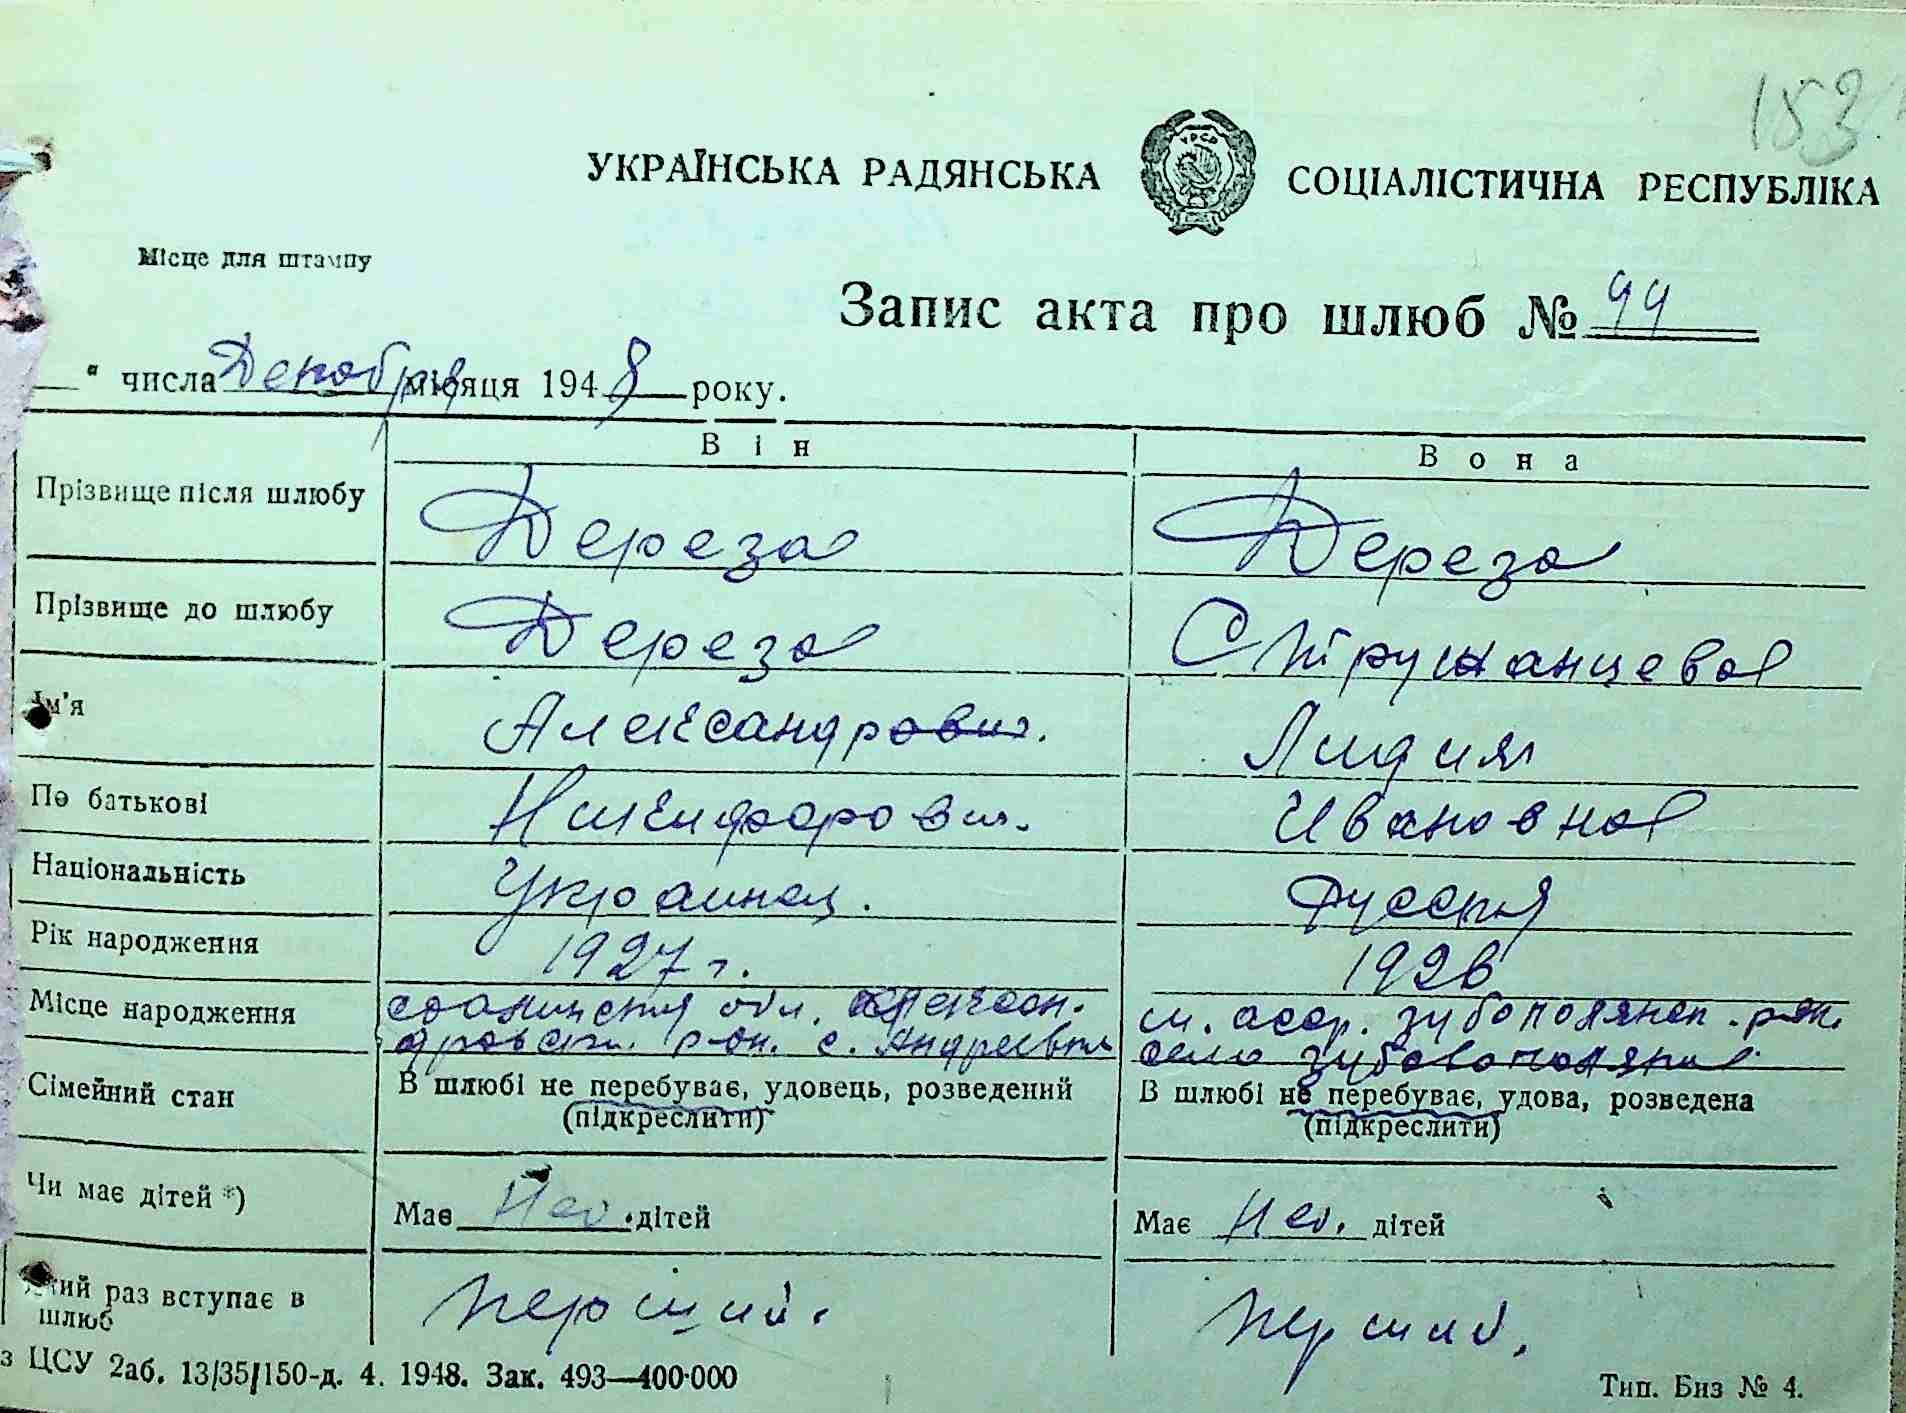 153
УКРАЇНСЬКА РАДЯНСЬКА СОЦІАЛІСТИЧНА РЕСПУБЛІКА
Місце для штампу
Запис акта про шлюб № 99
" числа Декабря місяця 1948 року.
Він Вона
Прізвище після шлюбу Дереза Дереза
Прізвище до шлюбу Дереза Стружанцева
Ім'я Александрович. Лидия
По батькові Никифорович. Ивановна
Національність Украинец. Русская
Рік народження 1927 г. 1926
Місце народження обл. м. асср. зубополянск. р-он.
р-он. с. Андреевка село зубовополяна
Сімейний стан В шлюбі не перебуває, удовець, розведений В шлюбі не перебуває, удова, розведена
(підкреслити) (підкреслити)
Чи має дітей *) Має Нет. дітей Має Нет. дітей
Який раз вступає в шлюб перший. перший.
з ЦСУ 2аб. 13/35/150-д. 4. 1948. Зак. 493—400·000 Тип. Биз № 4.